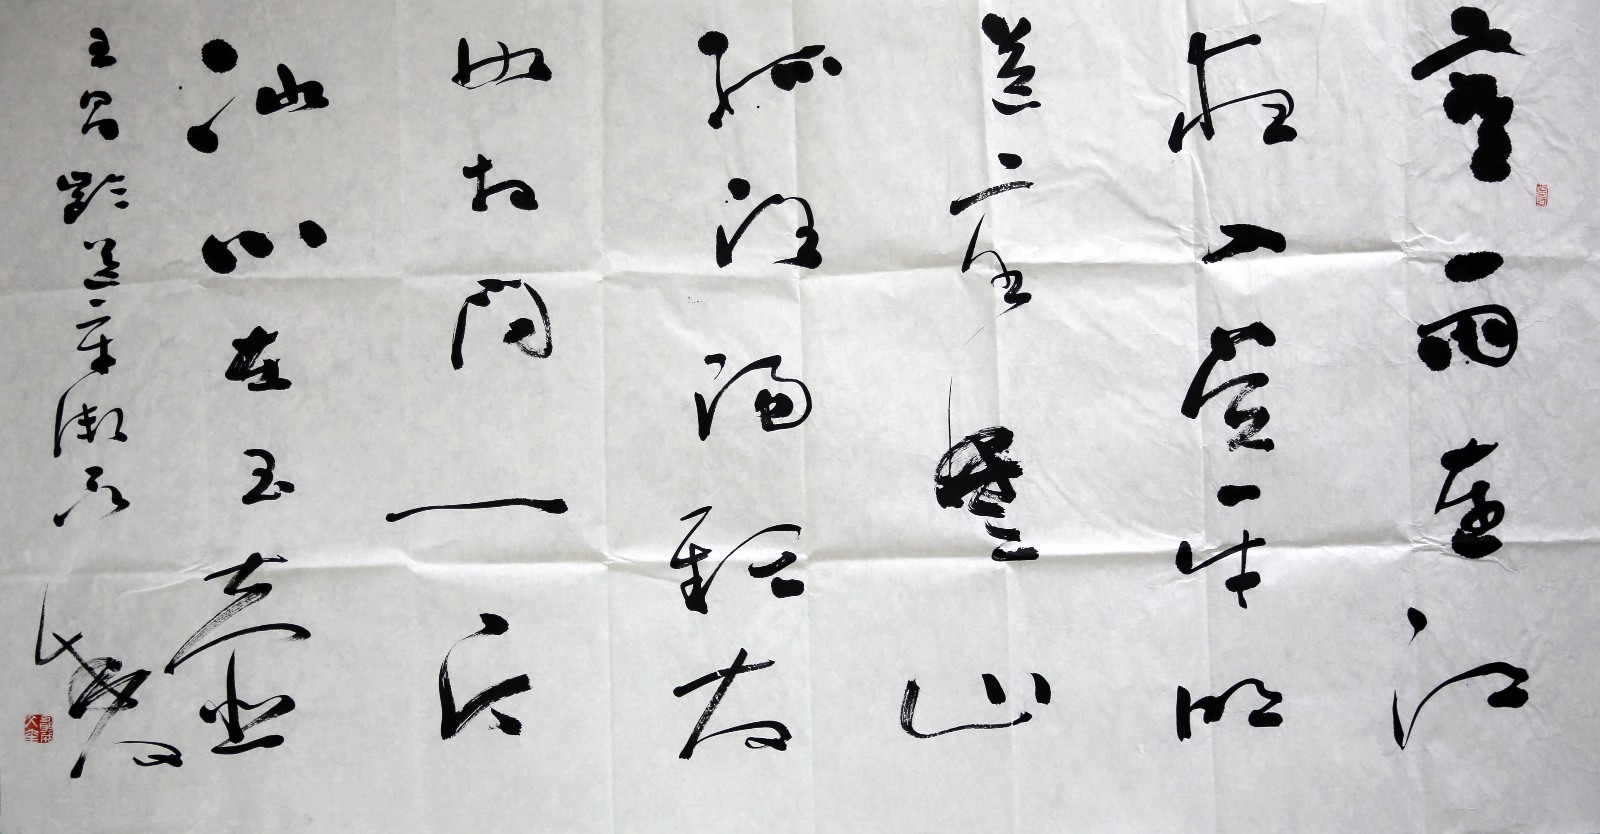 寒雨連江
夜入吳平明
送客楚山
孤洛陽親友
如相問一片
冰心在玉壺
王昌齡送辛漸